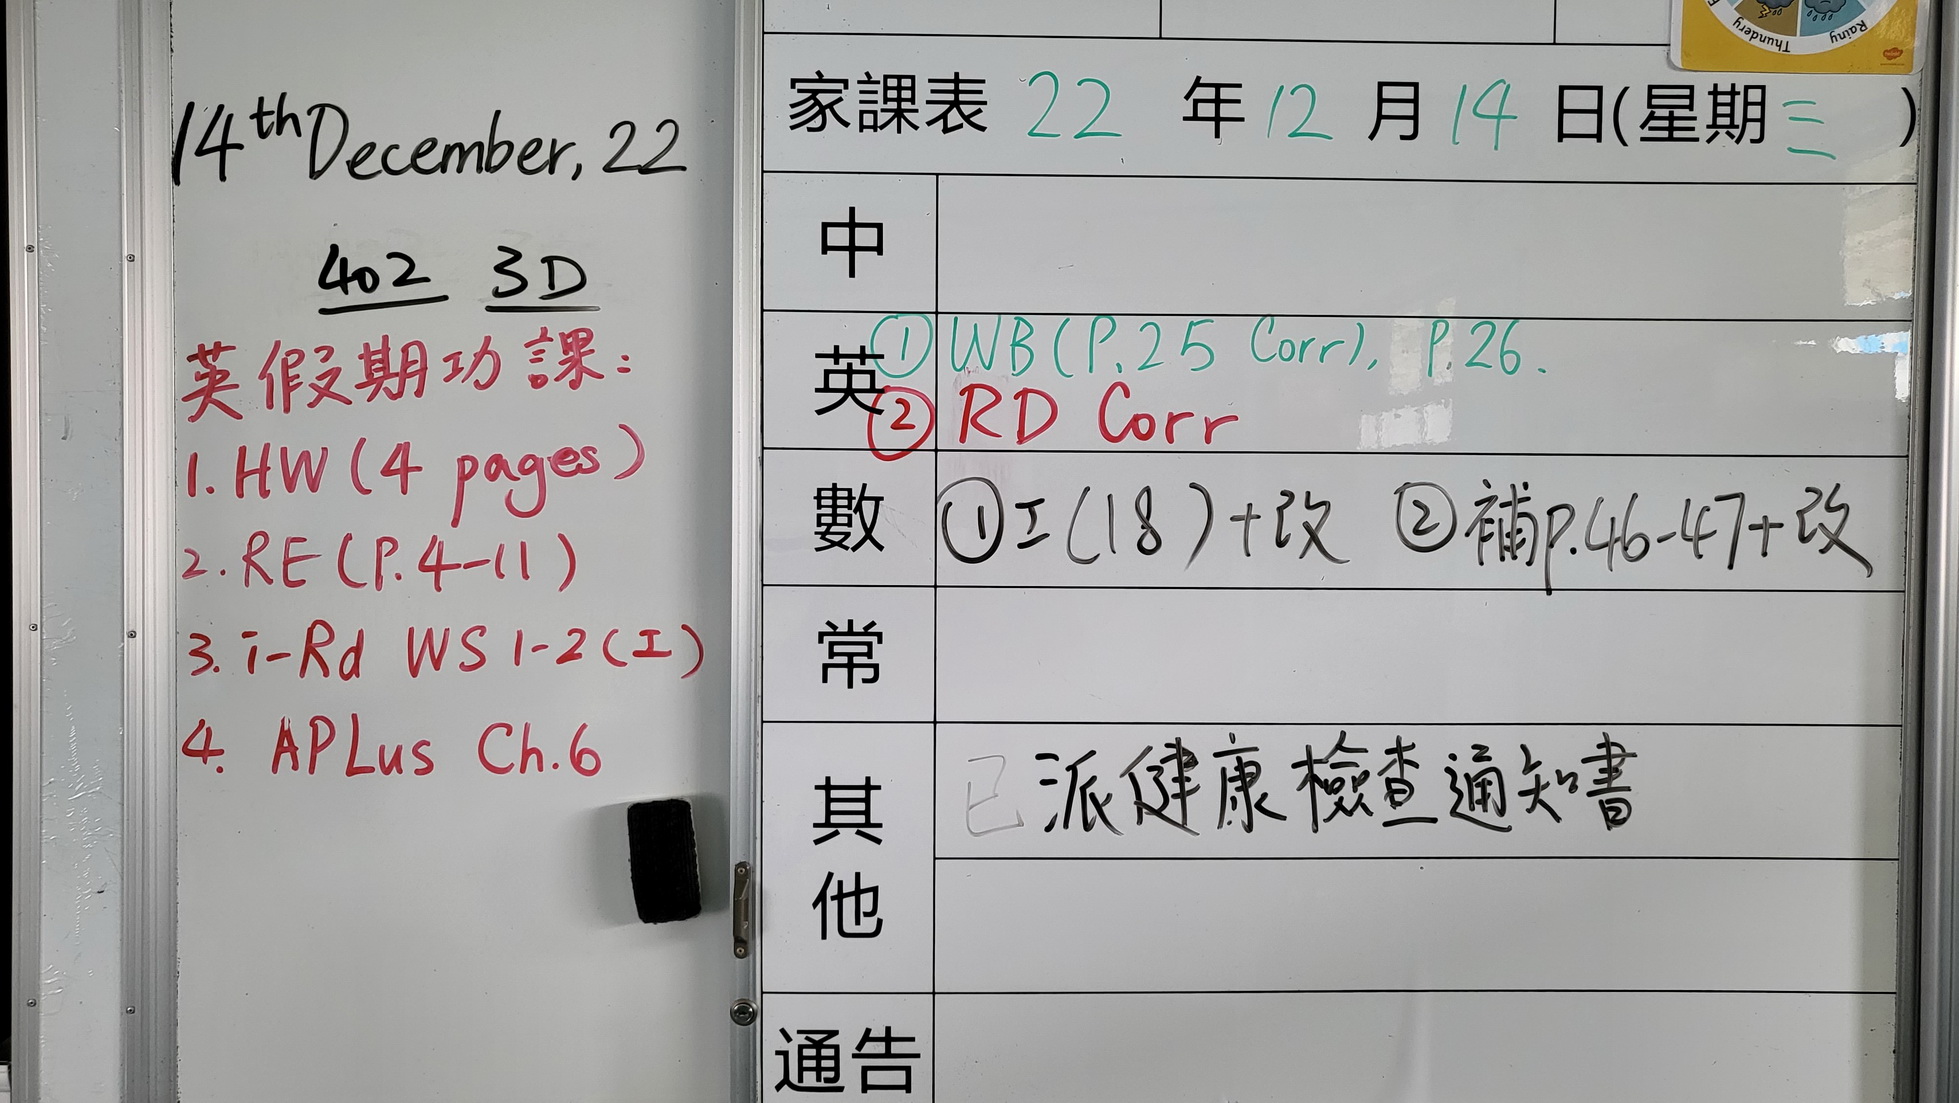 14th December, 22
402 3D
英假期功課:
1. HW (4 pages)
2. RE (P.4-11)
3. i-Rd WS 1-2 (工)
4. APLus Ch.6
Thundery
Rainy
家課表 22 年 12 月 14 日(星期三)
中
英
① WB (P.25 Corr), P.26.
② RD Corr
數
① 工(18)+改 ② 補p.46-47+改
常
其他
已派健康檢查通知書
通告